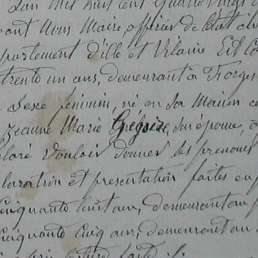 L'an mil huit cent quatre vingt
vant Nous Maire officier de l'état civil
partement d'Ille et Vilaine Est
trente un ans, demeurant à Forges
sexe féminin, né en sa Maison
Jeanne Marie Grégoire, son épouse,
claré vouloir donner les prénoms
claration et présentation faites en
cinquante huit ans, demeurant au
cinquante cinq ans, demeurant au